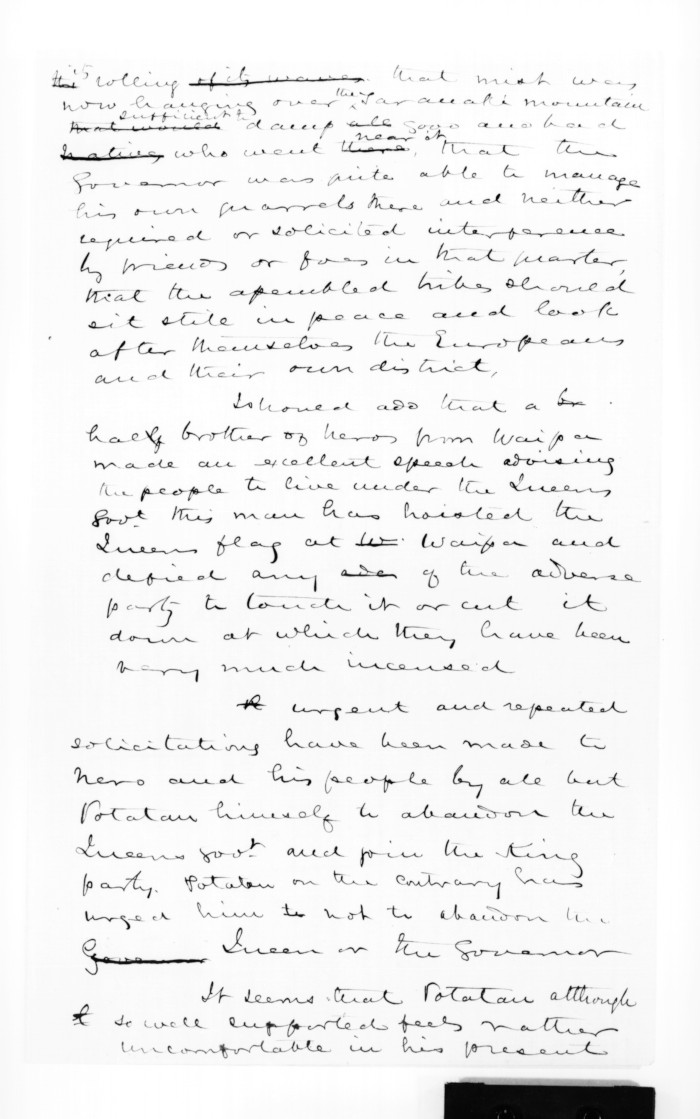 its rolling of its waves that mist was
now hanging over the Taranaki mountain
that would sufficient to damp all good and bad
natives who went there near it, that the
Governor was quite able to manage
his own quarrels there and neither
required or solicited interference
by friends or foes in that quarter,
that the assembled tribes should
sit still in peace and look
after themselves the Europeans
and their own district,
I should add that a br
half brother of heros from Waipa
made an excellent speech advising
the people to live under the Queens
Govt this man has hoisted the
Queens flag at W. Waipa and
defied any of the adverse
party to touch it or cut it
down at which they have been
very much incensed
urgent and repeated
solicitations have been made to
hero and his people by all but
Potatau himself to abandon the
Queens govt and join the King
party. Potatau on the contrary has
urged him to not to abandon the
Governor Queen or the Governor
It seems that Potatau although
so well supported feels rather
uncomfortable in his present